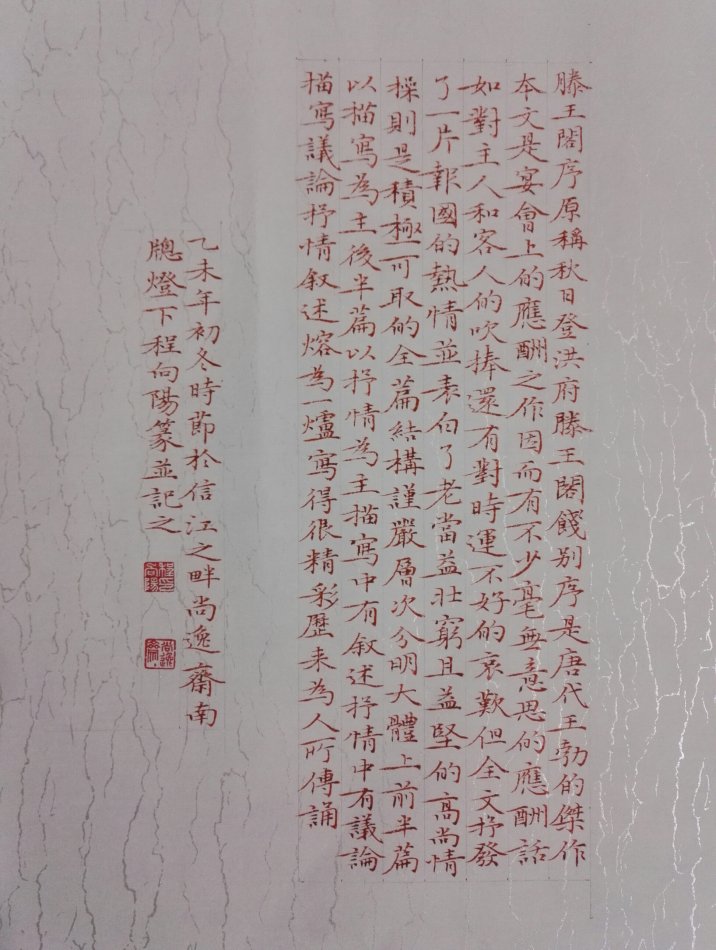 滕王閣序原稱秋日登洪府滕王閣餞别序是唐代王勃的傑作
本文是宴會上的應酬之作因而有不少毫無意思的應酬話
如對主人和客人的吹捧還有對時運不好的哀歎但全文抒發
了一片報國的熱情並表白了老當益壯窮且益堅的高尚情
操則是積極可取的全篇結構謹嚴層次分明大體上前半篇
以描寫為主後半篇以抒情為主描寫中有叙述抒情中有議論
描寫議論抒情叙述熔為一爐寫得很精彩歷来為人所傳誦
乙未年初冬時節於信江之畔尚逸齋南
牕燈下程向陽篆並記之